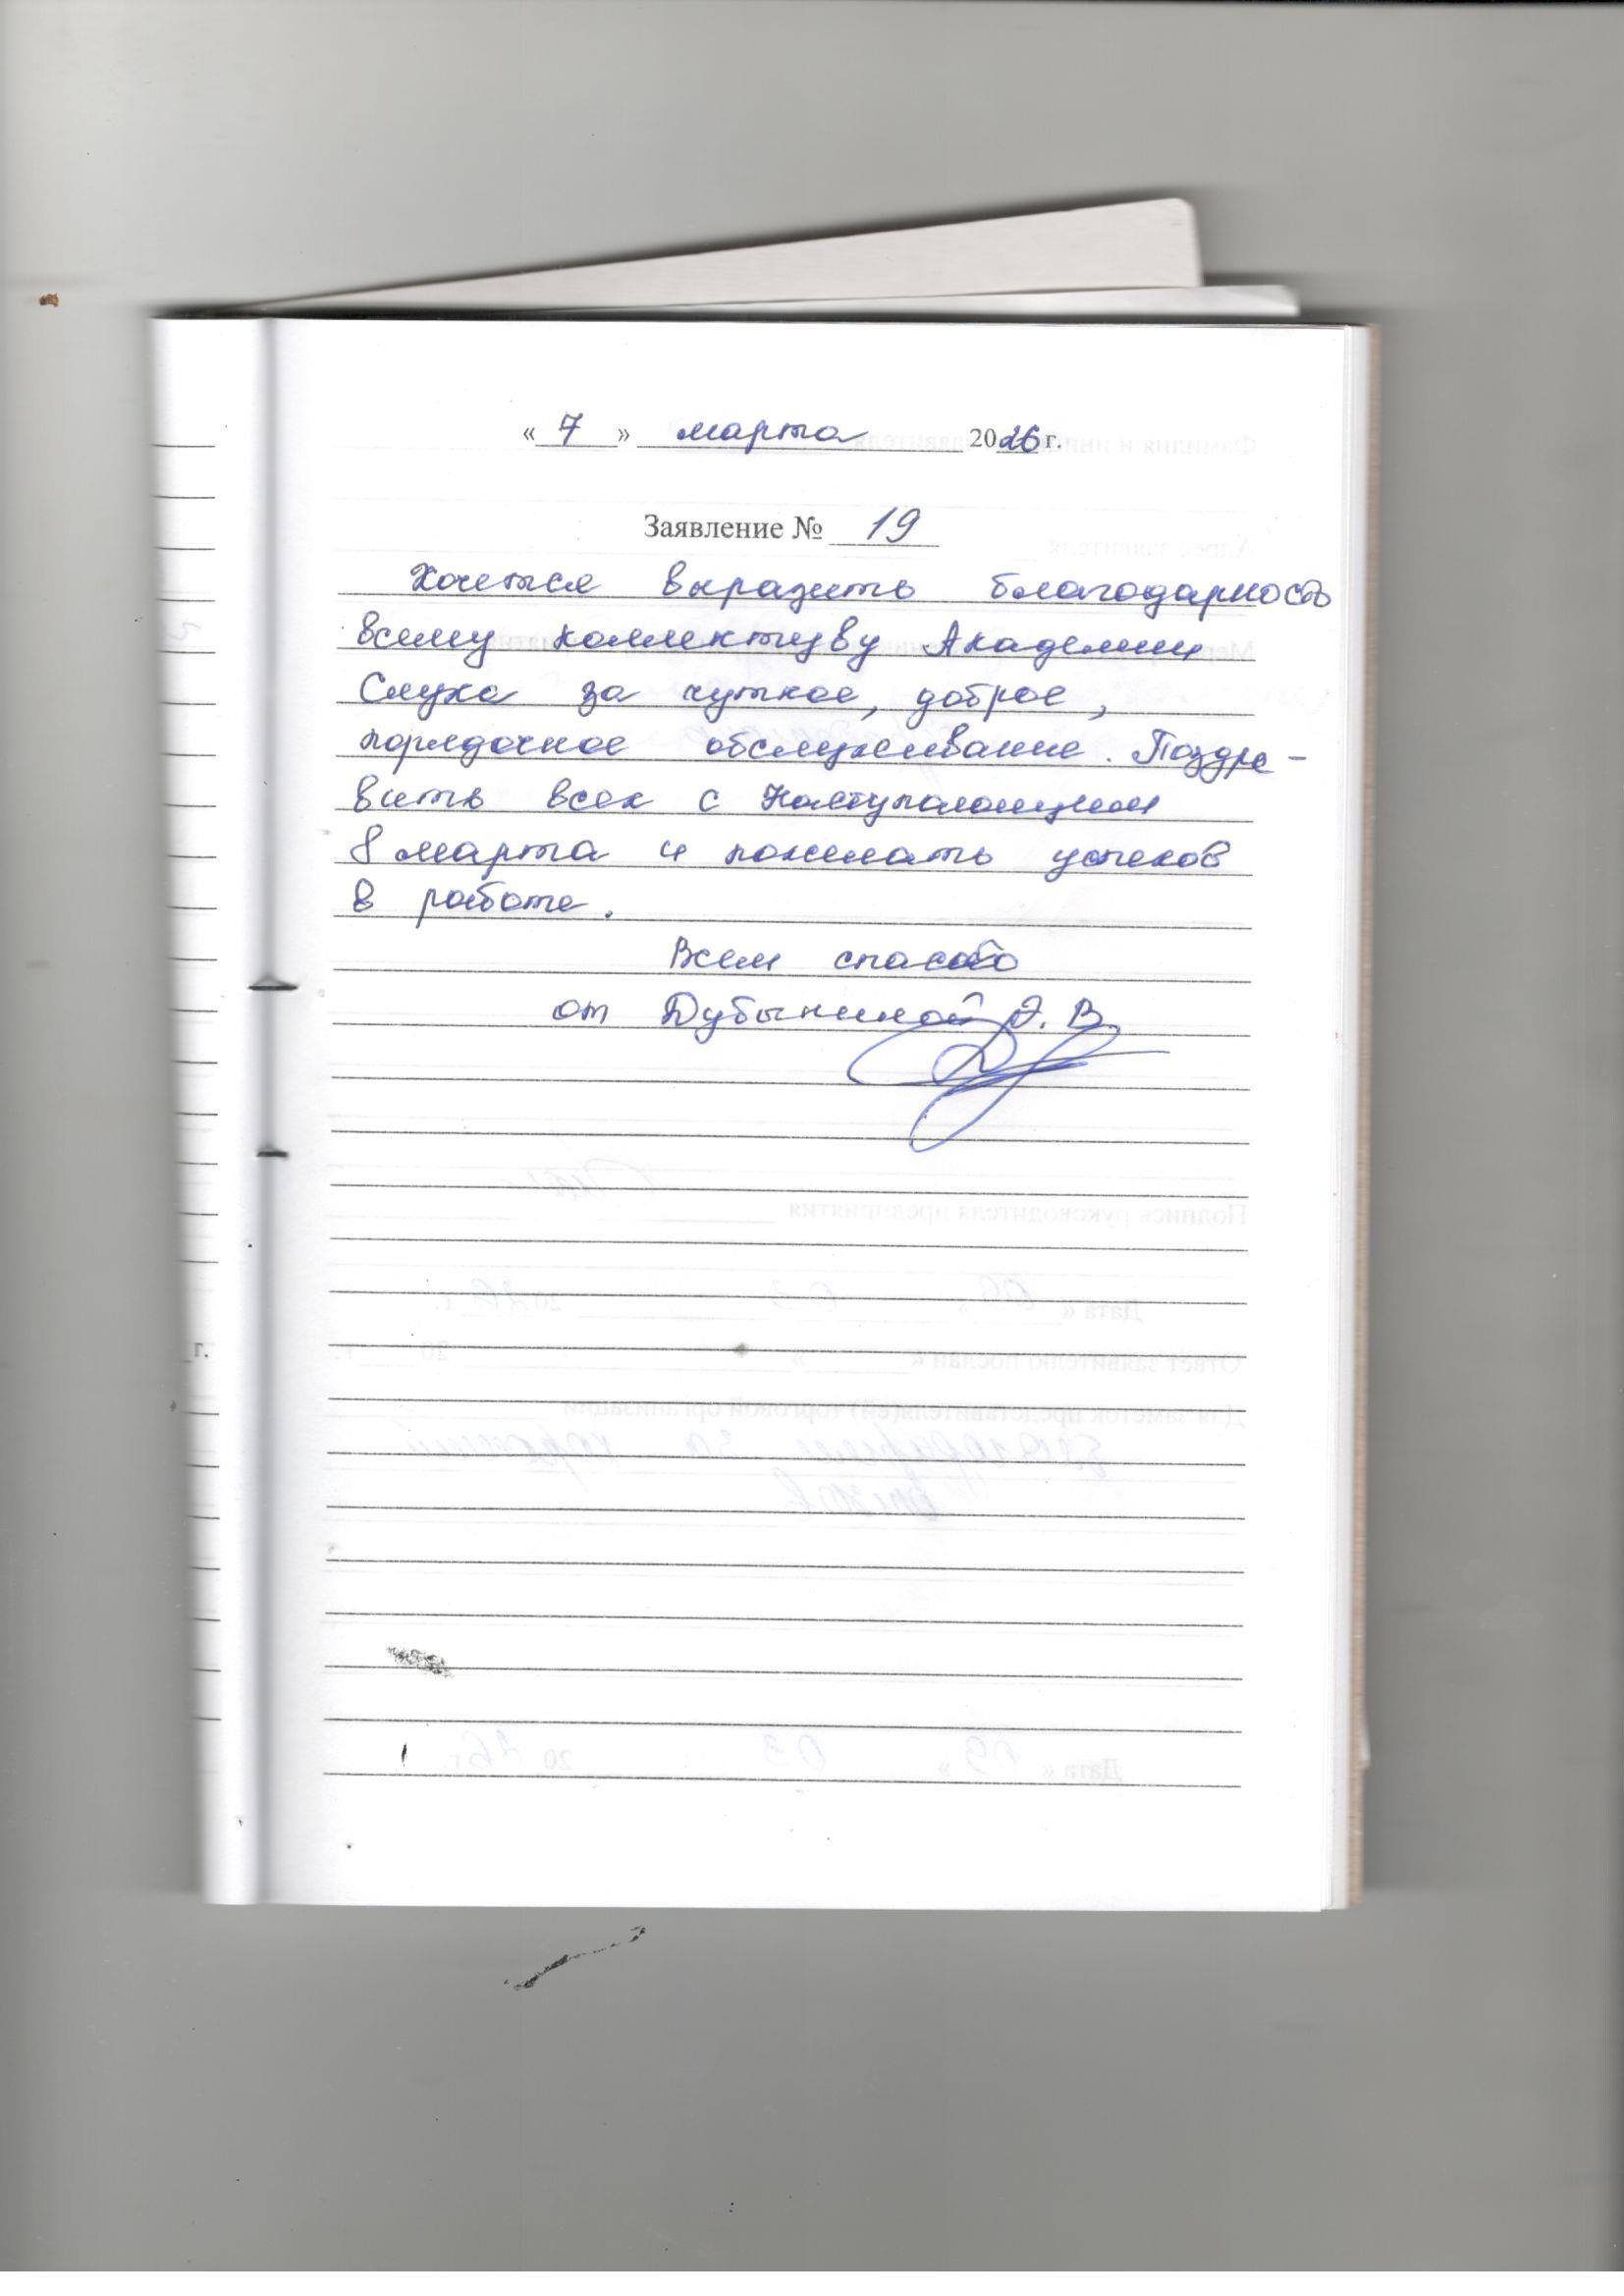 « 7 » марта 2026 г.
Заявление № 19
Хочется выразить благодарность
всему коллективу Академии
Слуха за чуткое, доброе,
порядочное обслуживание. Поздра-
вить всех с Наступающим
8 марта и пожелать успехов
в работе.
Всем спасибо
от Дубыниной Э. В.